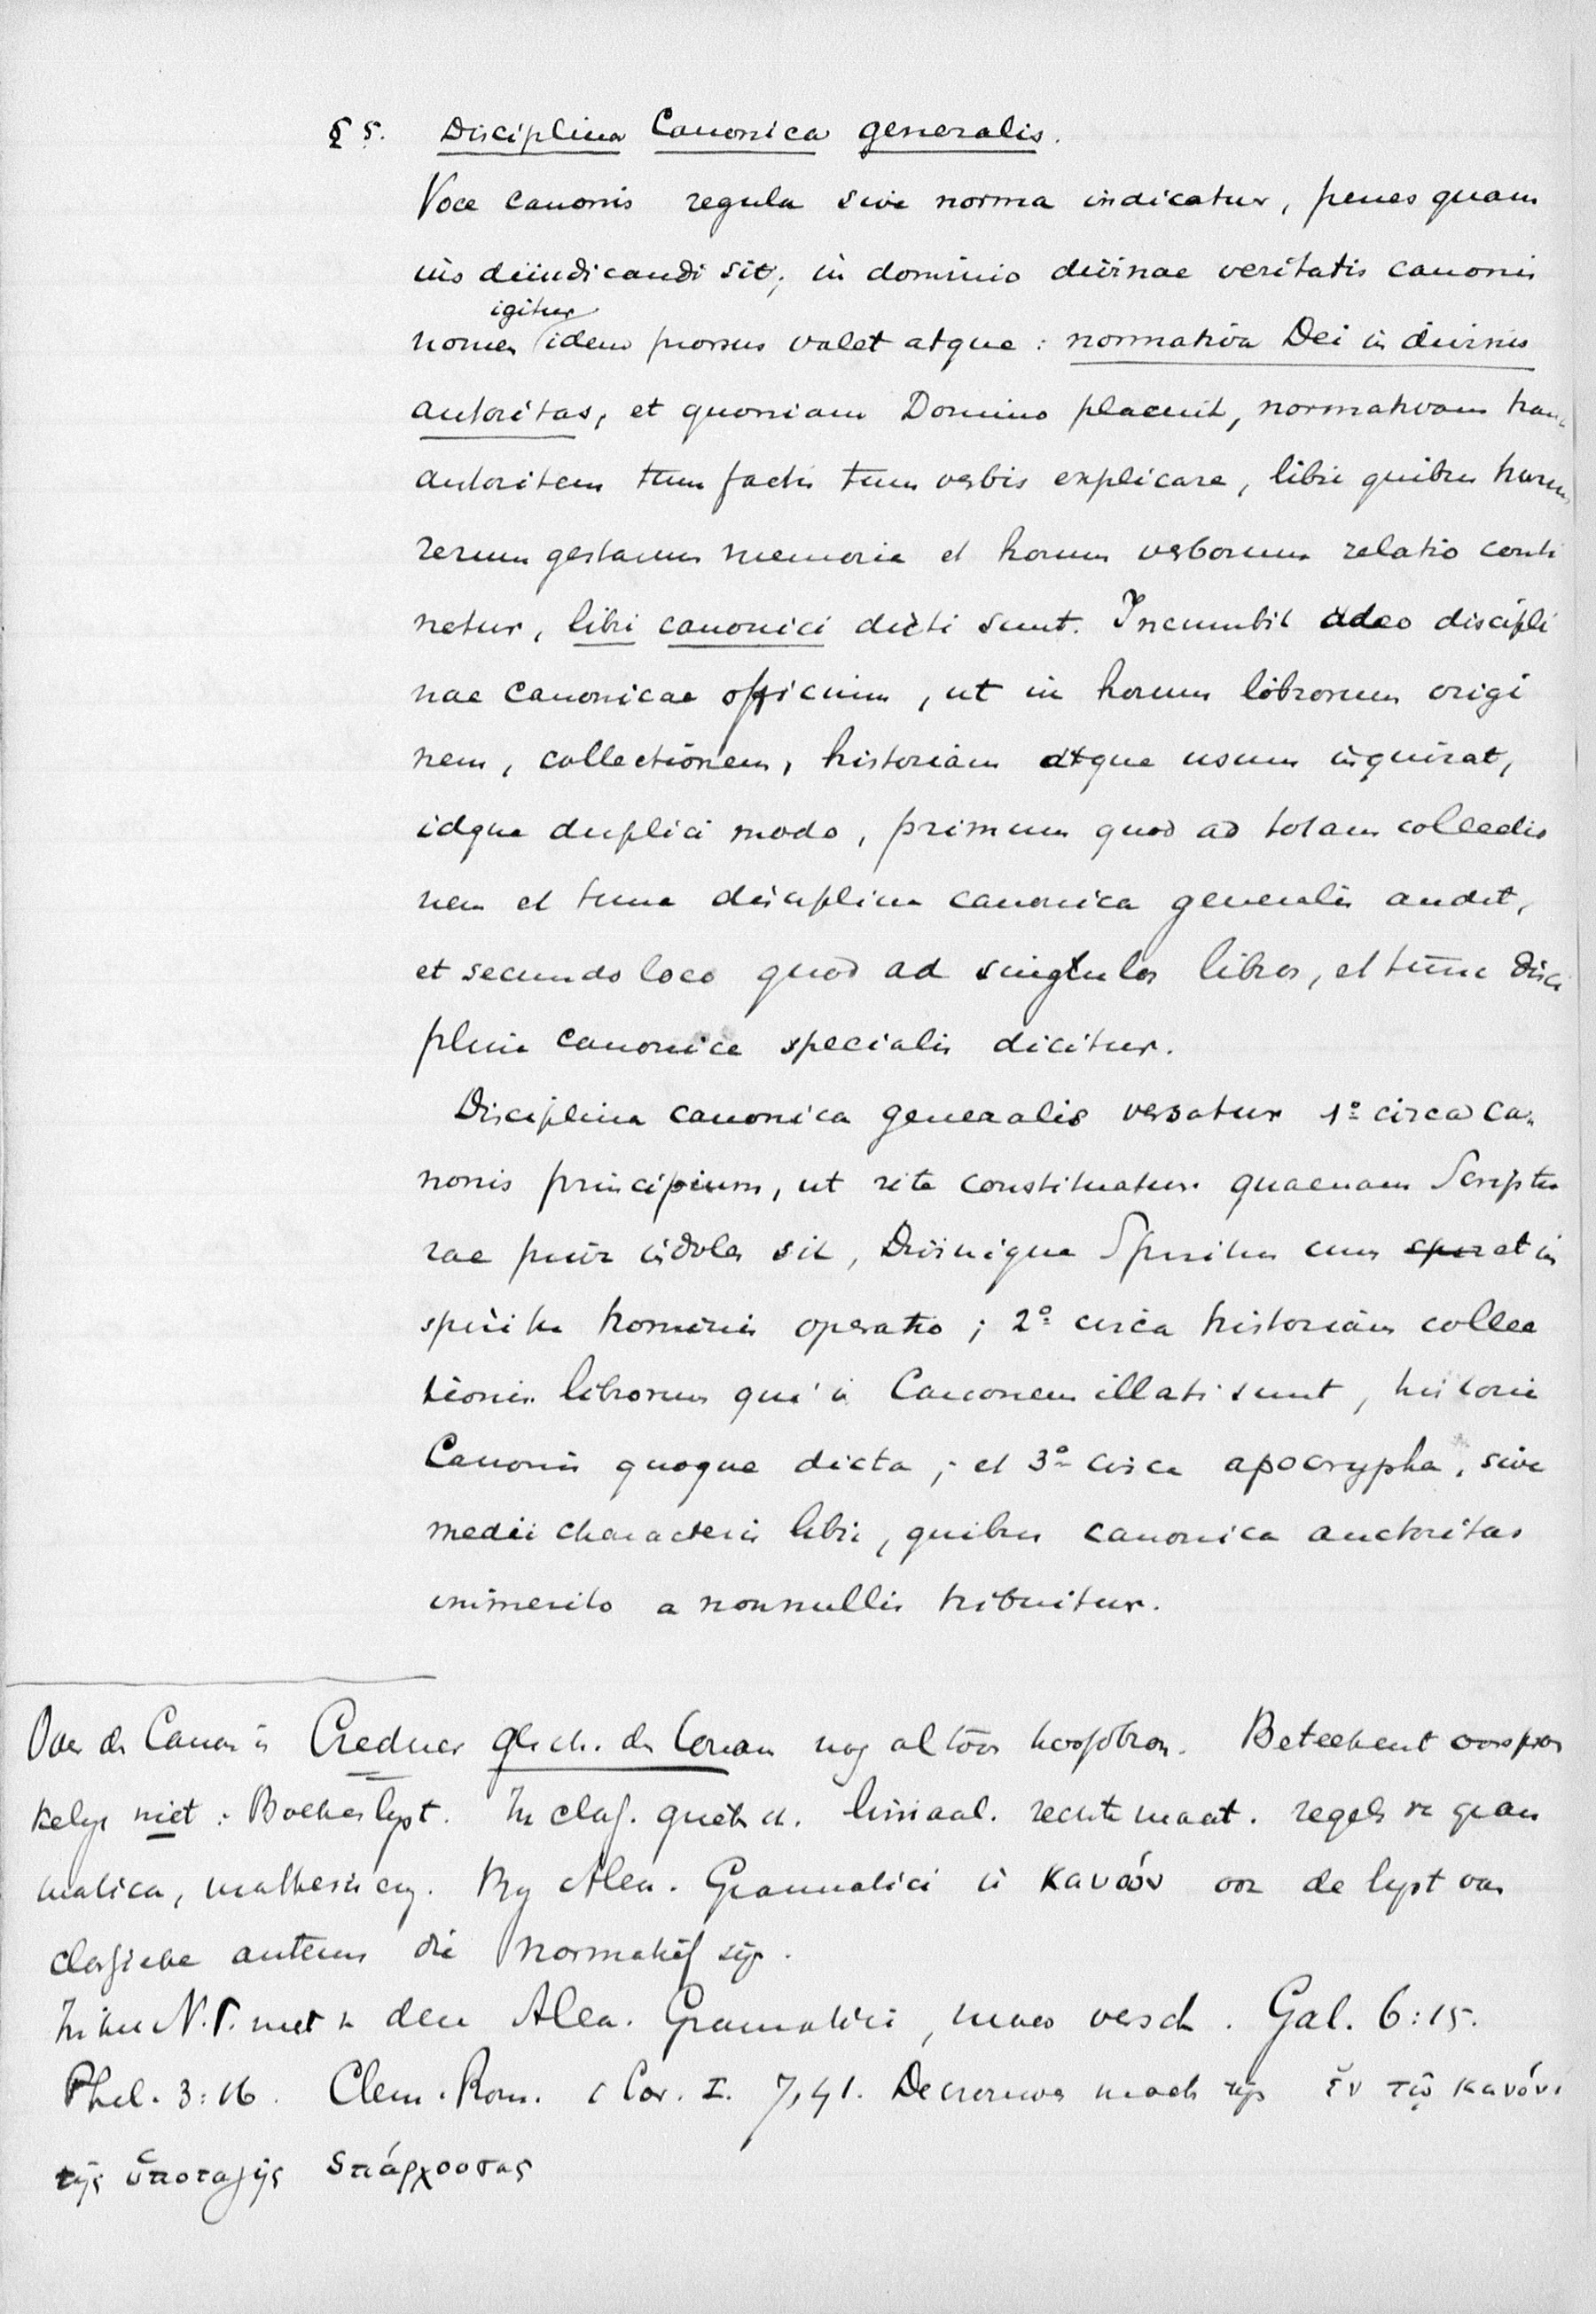 § 5. Disciplina Canonica generalis.
Voce canonis regula sive norma indicatur, penes quam
ius diiudicandi sit; in dominio divinae veritatis canonis
igitur
nomen idem prorsus valet atque: normativa Dei in divinis
autoritas, et quoniam Domino placuit, normativam hanc
autoritem tum factis tum verbis explicare, libri quibus harum
rerum gestarum memoria et horum verborum relatio conti
netur, libri canonici dicti sunt. Incumbit adeo discipli
nae canonicae officium, ut in horum librorum origi
nem, collectionem, historiam atque usum inquirat,
idque duplici modo, primum quod ad totam collectio
nem et tunc disciplina canonica generalis audit,
et secundo loco quod ad singulos libros, et tunc disci
plina canonica specialis dicitur.
Disciplina canonica generalis versatur 1º circa ca-
nonis principium, ut rite constituatur quaenam Scriptu
rae sit, Divinique Spiritus cum et in
spiritu hominis operatio; 2º circa historiam collec
tionis librorum qui in Canonem illati sunt, historia
Canonis quoque dicta; et 3º circa apocrypha, sive
medii characteris libri, quibus canonica auctoritas
immerito a nonnullis tribuitur.
Over de Canon is Credner Gesch. des Canon nog altoos hoofdbron. Beteekent oorspron
kelijk niet: Boekenlijst. In class. liniaal. rechte maat. regels gram
matica, mathesis enz. By Alex. Grammatici is κανών voor de lyst van
classieke auteurs die normatief zijn.
In het N.T. niet in den Alex. Grammatici, maar versch. Gal. 6:15.
Phil. 3:16. Clem. Rom. Cor. I. 7,41. ἐν τῷ κανόνι
τῆς ὑποταγῆς ὑπάρχουσας